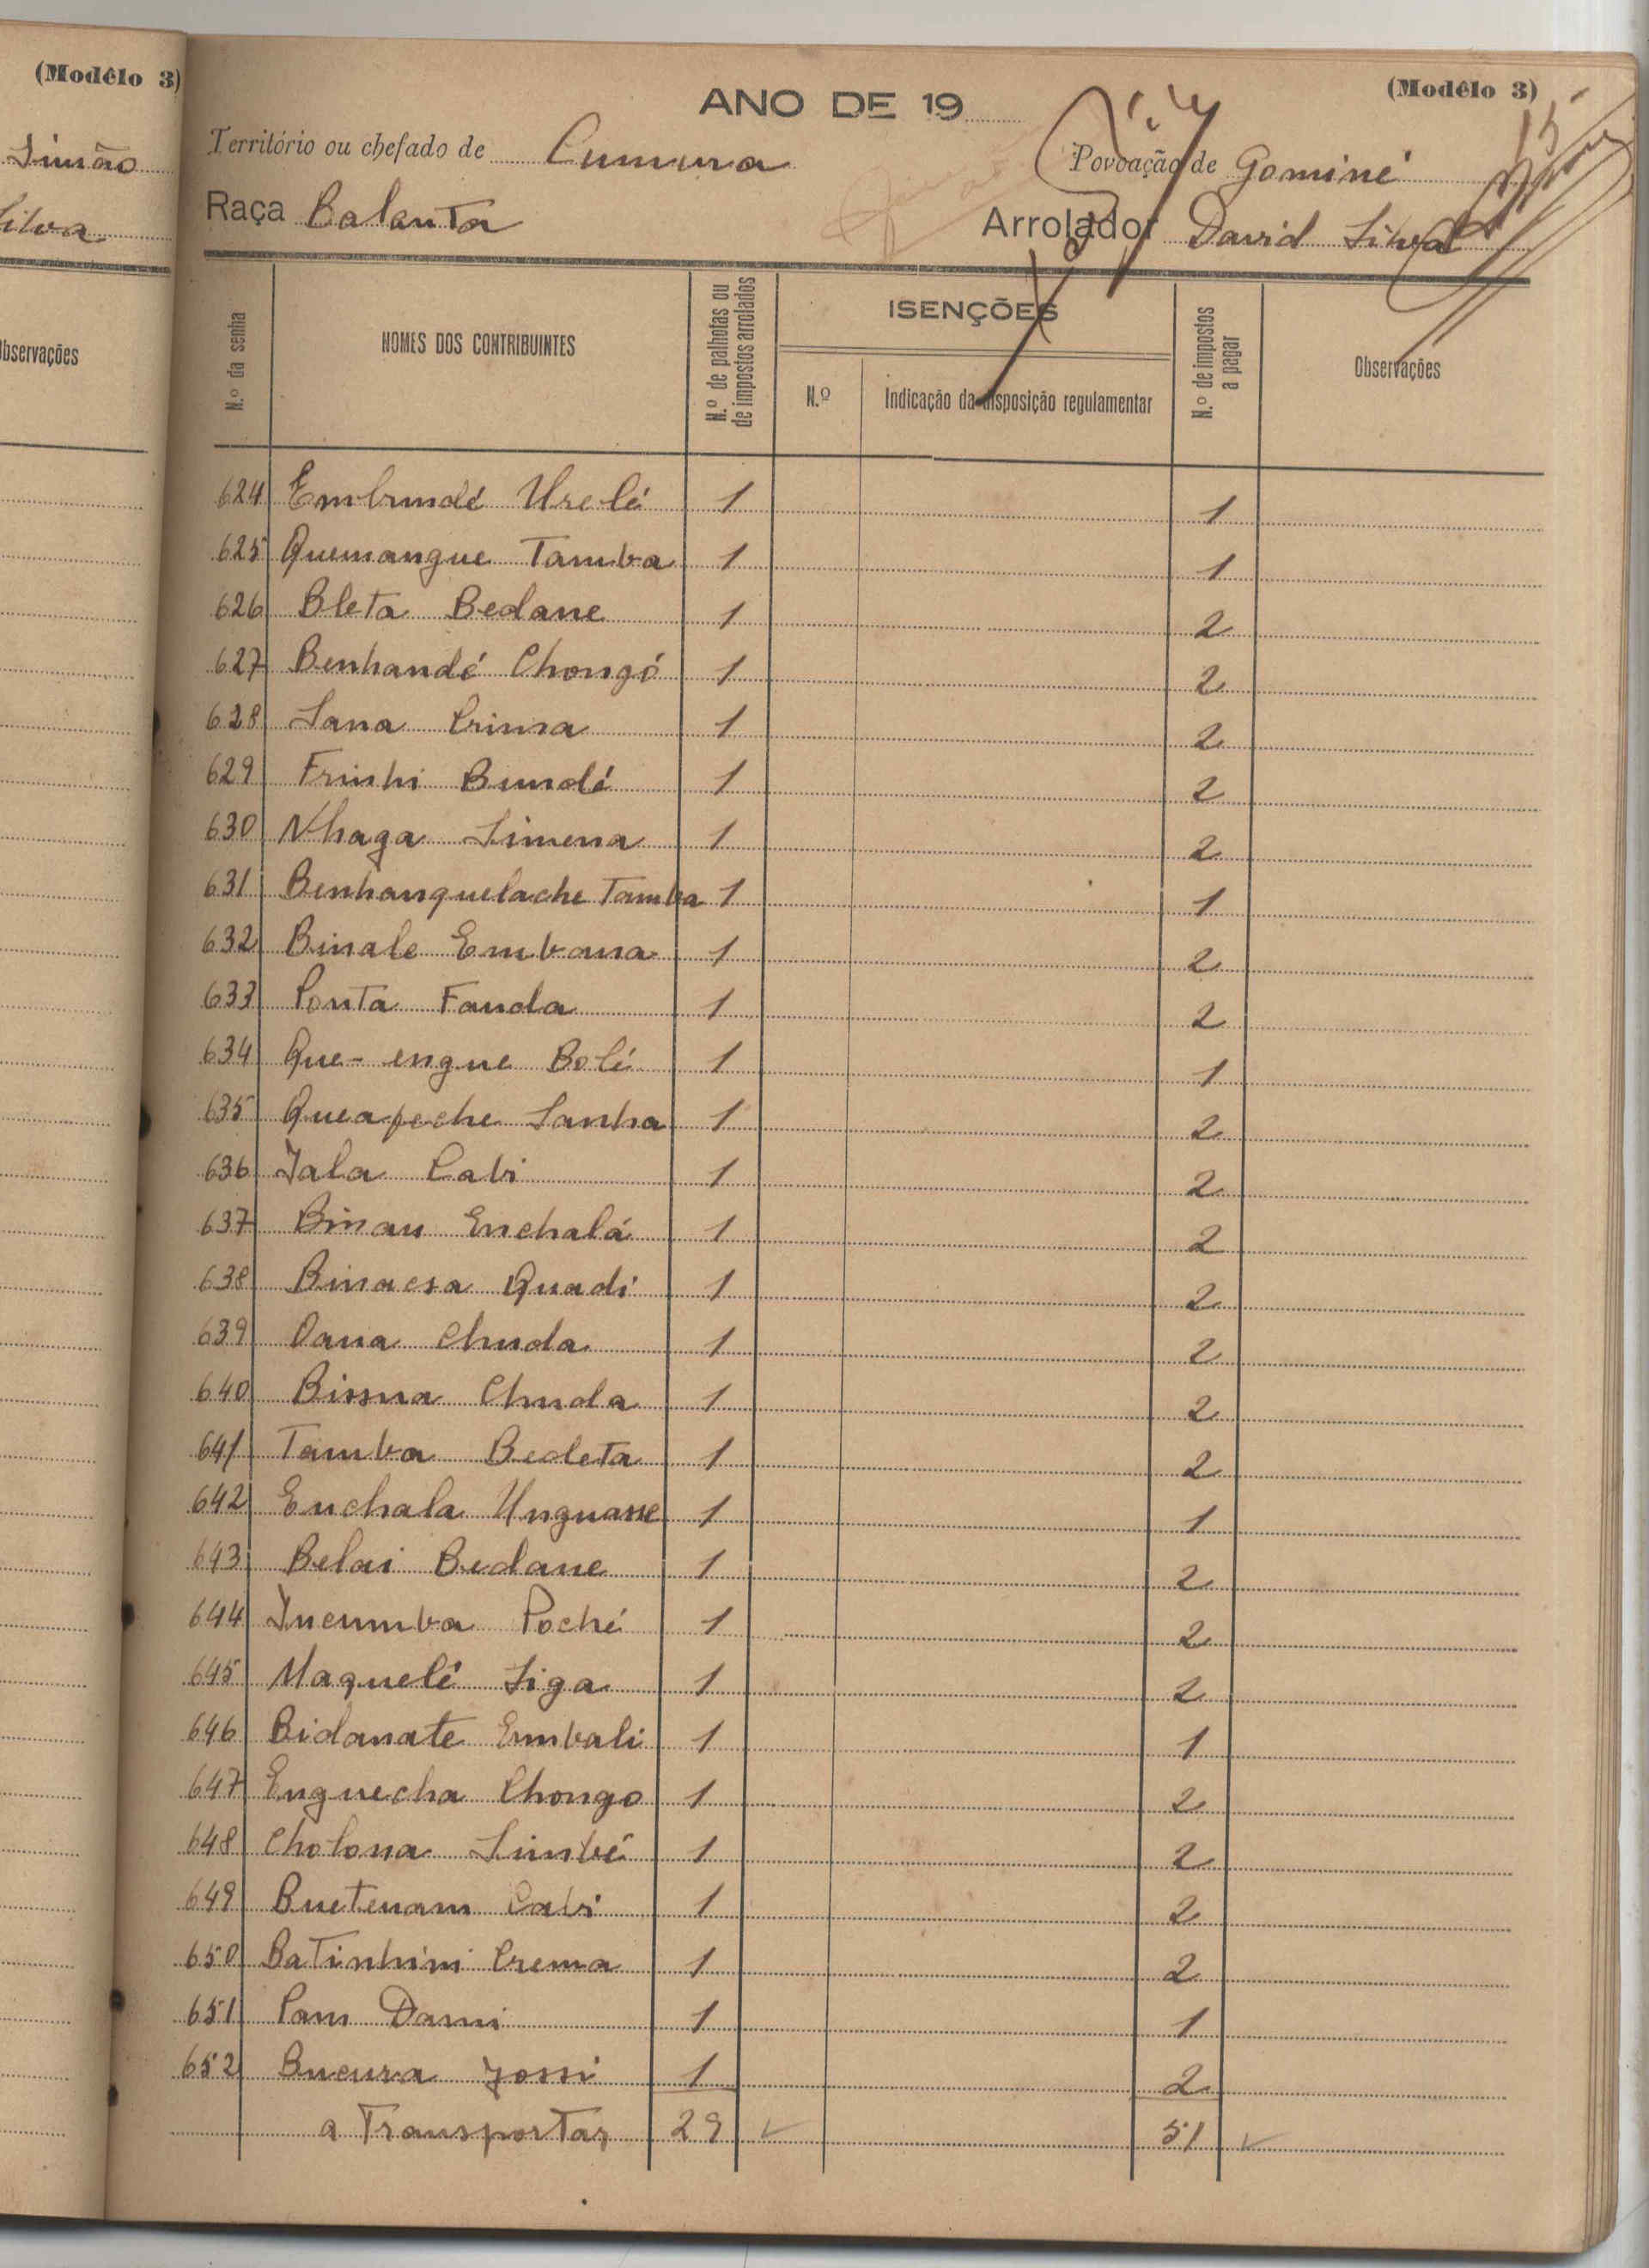 (Modêlo 3)
Simão
Silva
Observações
(Modêlo 3)
ANO DE 19
Território ou chefado de Cumura Povoação de Gominé
Raça Balanta Arrolador David Silva
N.º da senha NOMES DOS CONTRIBUINTES N.º de palhotas ou de impostos arrolados ISENÇÕES N.º de impostos a pagar Observações
N.º Indicação da disposição regulamentar
624 Embundé Urelé 1 1
625 Quemangue Tamba 1 1
626 Bleta Bedane 1 2
627 Benhandé Chongó 1 2
628 Sana Crima 1 2
629 Frinhi Bundé 1 2
630 Nhaga Simena 1 2
631 Benhanquelache Tamba 1 1
632 Binale Embana 1 2
633 Ponta Fanda 1 2
634 Que-engue Bolé 1 1
635 Queapeche Sanha 1 2
636 Jala Cabi 1 2
637 Binau Enchalá 1 2
638 Binaesa Quadi 1 2
639 Dana Chuda 1 2
640 Bissua Chuda 1 2
641 Tamba Bedeta 1 2
642 Enchala Unguasse 1 1
643 Belai Bedane 1 2
644 Incumba Poché 1 2
645 Maquelé Siga 1 2
646 Bidanate Embali 1 1
647 Enguecha Chongo 1 2
648 Cholona Simbé 1 2
649 Buetenam Cabi 1 2
650 Batinhini Crema 1 2
651 Pam Dami 1 1
652 Bucura Jossi 1 2
a Transportar 29 51